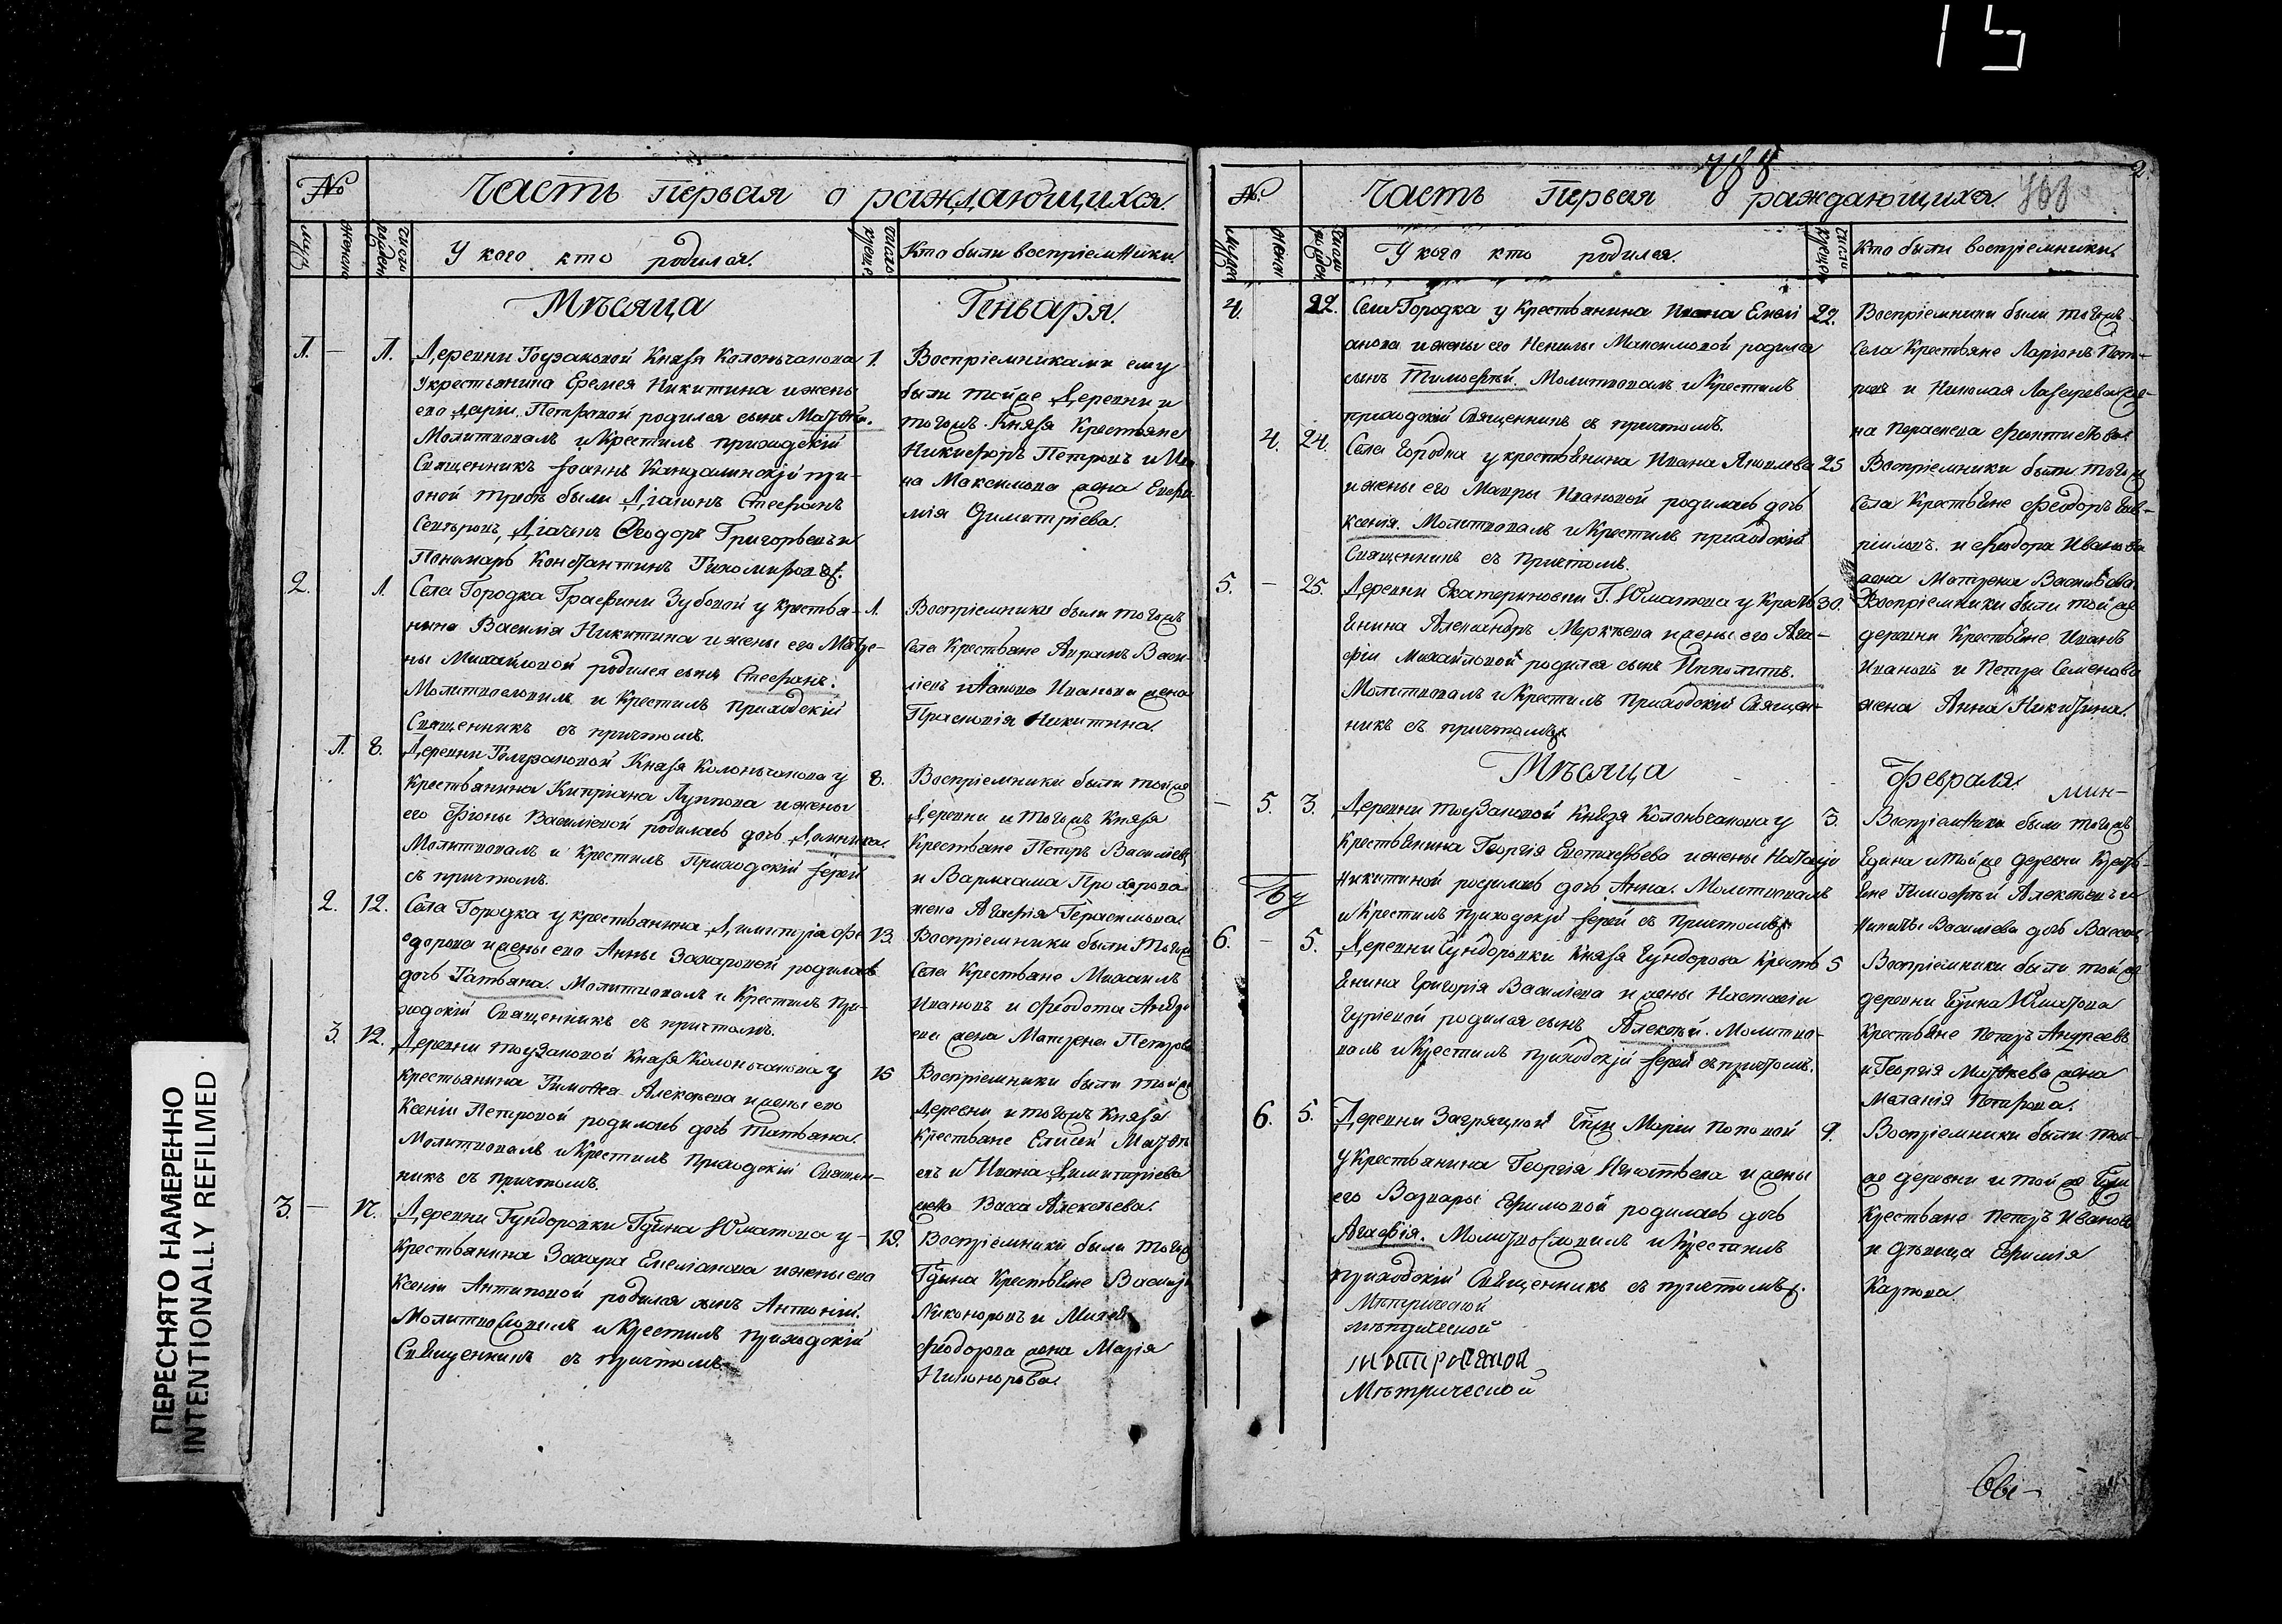 15
№
Часть первая о раждающихся.
Мужъ
Женска
Число рожден
У кого кто родился.
Число крещен
Кто были воспріемники
Мѣсяца Генваря.
1. — 1. Деревни Князя Колончакова 1.
Укрестьянина Еремея Никитина и жены
его Даріи Петровой родился сынъ
Молитвовалъ и Крестилъ приходскій
Священникъ Іоаннъ Кандалинскій при
оной требѣ были Діаконъ Стефанъ
Діачекъ Ѳеодоръ Григорьевъ и
Пономарь Константинъ Тихомировъ.
Воспріемниками ему
были тойже Деревни и
тогожъ Князя Крестьяне
Никифоръ Петровъ и
на Максимова жена
мія Димитріева.
2. 1. Села Городка Графини Зубовой у крестья- 1.
нина Василія Никитина и жены его Матре-
ны Михайловой родился сынъ Стефанъ.
Молитвословилъ и Крестилъ Приходскій
Священникъ съ причтомъ.
Воспріемники были тогожъ
Села Крестьяне Авраамъ Васи-
Иванова жена
Никитина.
1. 8. Деревни Князя Колончакова у 8.
Крестьянина Кипріана Луппова и жены
его Фіоны Василіевой родилась дочь Домника.
Молитвовалъ и Крестилъ Приходскій Іерей
съ причтомъ.
Воспріемники были тойже
Деревни и тогожъ Князя
Крестьяне Петръ Василіевъ
и Варлаама Прохорова
жена Агафія Герасимова.
2. 12. Села Городка у крестьянина Димитрія Фе 13.
едорова и жены его Анны Захаровой родилась
дочь Татьяна. Молитвовалъ и Крестилъ При-
ходскій Священникъ съ причтомъ.
Воспріемники были тогожъ
Села Крестьяне Михаилъ
Ивановъ и Ѳеодота Андре
ева жена Матрена Петрова
3. 12. Деревни Князя Колончакова у 15
Крестьянина Тимофея Алексѣева и жены его
Ксеніи Петровой родилась дочь Татьяна.
Молитвовалъ и Крестилъ Приходскій Священ-
никъ съ причтомъ.
Воспріемники были тойже
Деревни и тогожъ Князя
Крестьяне Елисей
евъ и Ивана Димитріева
жена Васса Алексѣева.
3. — 17. Деревни Гундоровки Гдина Юматова у 19.
Крестьянина Захара Емеліанова и жены его
Ксеніи Антиповой родился сынъ Антоній.
Молитвословилъ и Крестилъ приходскій
Священникъ съ причтомъ
Воспріемники были тогожъ
Гдина Крестьяне
Никоноровъ и
Ѳеодорова жена Марія
Никонорова.
2.
№.
Часть Первая о раждающихся.
У кого кто родился.
Кто были воспріемники
4. 22. Села Городка у Крестьянина Ивана Емелі 22.
анова и жены его Ненилы Максимовой родился
сынъ Тимофей. Молитвовалъ и Крестилъ
приходскій Священникъ съ причтомъ.
Воспріемники были тогожъ
Села Крестьяне Ларіонъ Пет-
ровъ и Николая
на
4. 24. Села Городка у крестьянина Ивана Яковлева 25
и жены его Мавры Ивановой родилась дочь
Ксенія. Молитвовалъ и Крестилъ приходскій
Священникъ съ причтомъ.
Воспріемники были тогожъ
Села Крестьяне Ѳеодоръ Гав-
ріиловъ и Ѳеодора Иванова
жена Матрена Васильева.
5. — 25. Деревни Екатериновки Г. Юматова у Кресть 30.
янина Александра Меркѣева и жены его Ага-
фіи Михайловой родился сынъ Ипполитъ.
Молитвовалъ и Крестилъ Приходскій Священ-
никъ съ причтомъ.
Воспріемники были тойже
деревни Крестьяне Иванъ
Ивановъ и Петра Семенова
жена Анна Никитина.
Мѣсяца Февраля.
— 5. 3. Деревни Князя Колончакова у 3.
Крестьянина Георгія Евстафьева и жены Наталіи
Никитиной родилась дочь Анна. Молитвовалъ
и Крестилъ приходскій Іерей съ Причтомъ
Воспріемники были тогожъ
Гдина и тойже деревни Кресть-
яне Тимофей Алексѣевъ и
Никиты Василіева дочь
6. — 5. Деревни Гундоровки Князя Гундорова Кресть 5
янина Григорія Василіева и жены Настасіи
Гуріевой родился сынъ Алексѣй. Молитво-
валъ и Крестилъ приходскій Іерей съ причтомъ.
Воспріемники были тойже
деревни Гдина Юматова
Крестьяне Петръ Андреевъ
и Георгія Матвѣева жена
Меланія Петрова.
6. 5. Деревни Загрядской Гжи Маріи Поповой 9.
у Крестьянина Георгія Игнатьева и жены
его Варвары Ефимовой родилась дочь
Агафія. Молитвословилъ и Крестилъ
приходскій Священникъ съ причтомъ.
Воспріемники были той-
же деревни и тойже Гжи
Крестьяне Петръ Ивановъ
и дѣвица Ефимія
Карпова
Метрической
Метрической
Метрической
Метрической
ПЕРЕСНЯТО НАМЕРЕННО
INTENTIONALLY REFILMED